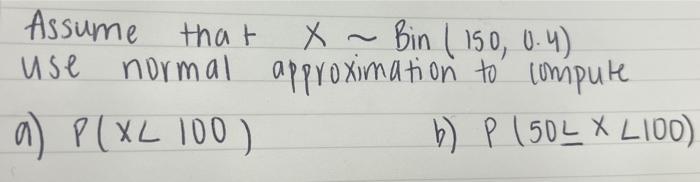 Assume that X ~ Bin (150, 0.4)
use normal approximation to compute
a) P(X< 100) b) P (50≤ X <100)